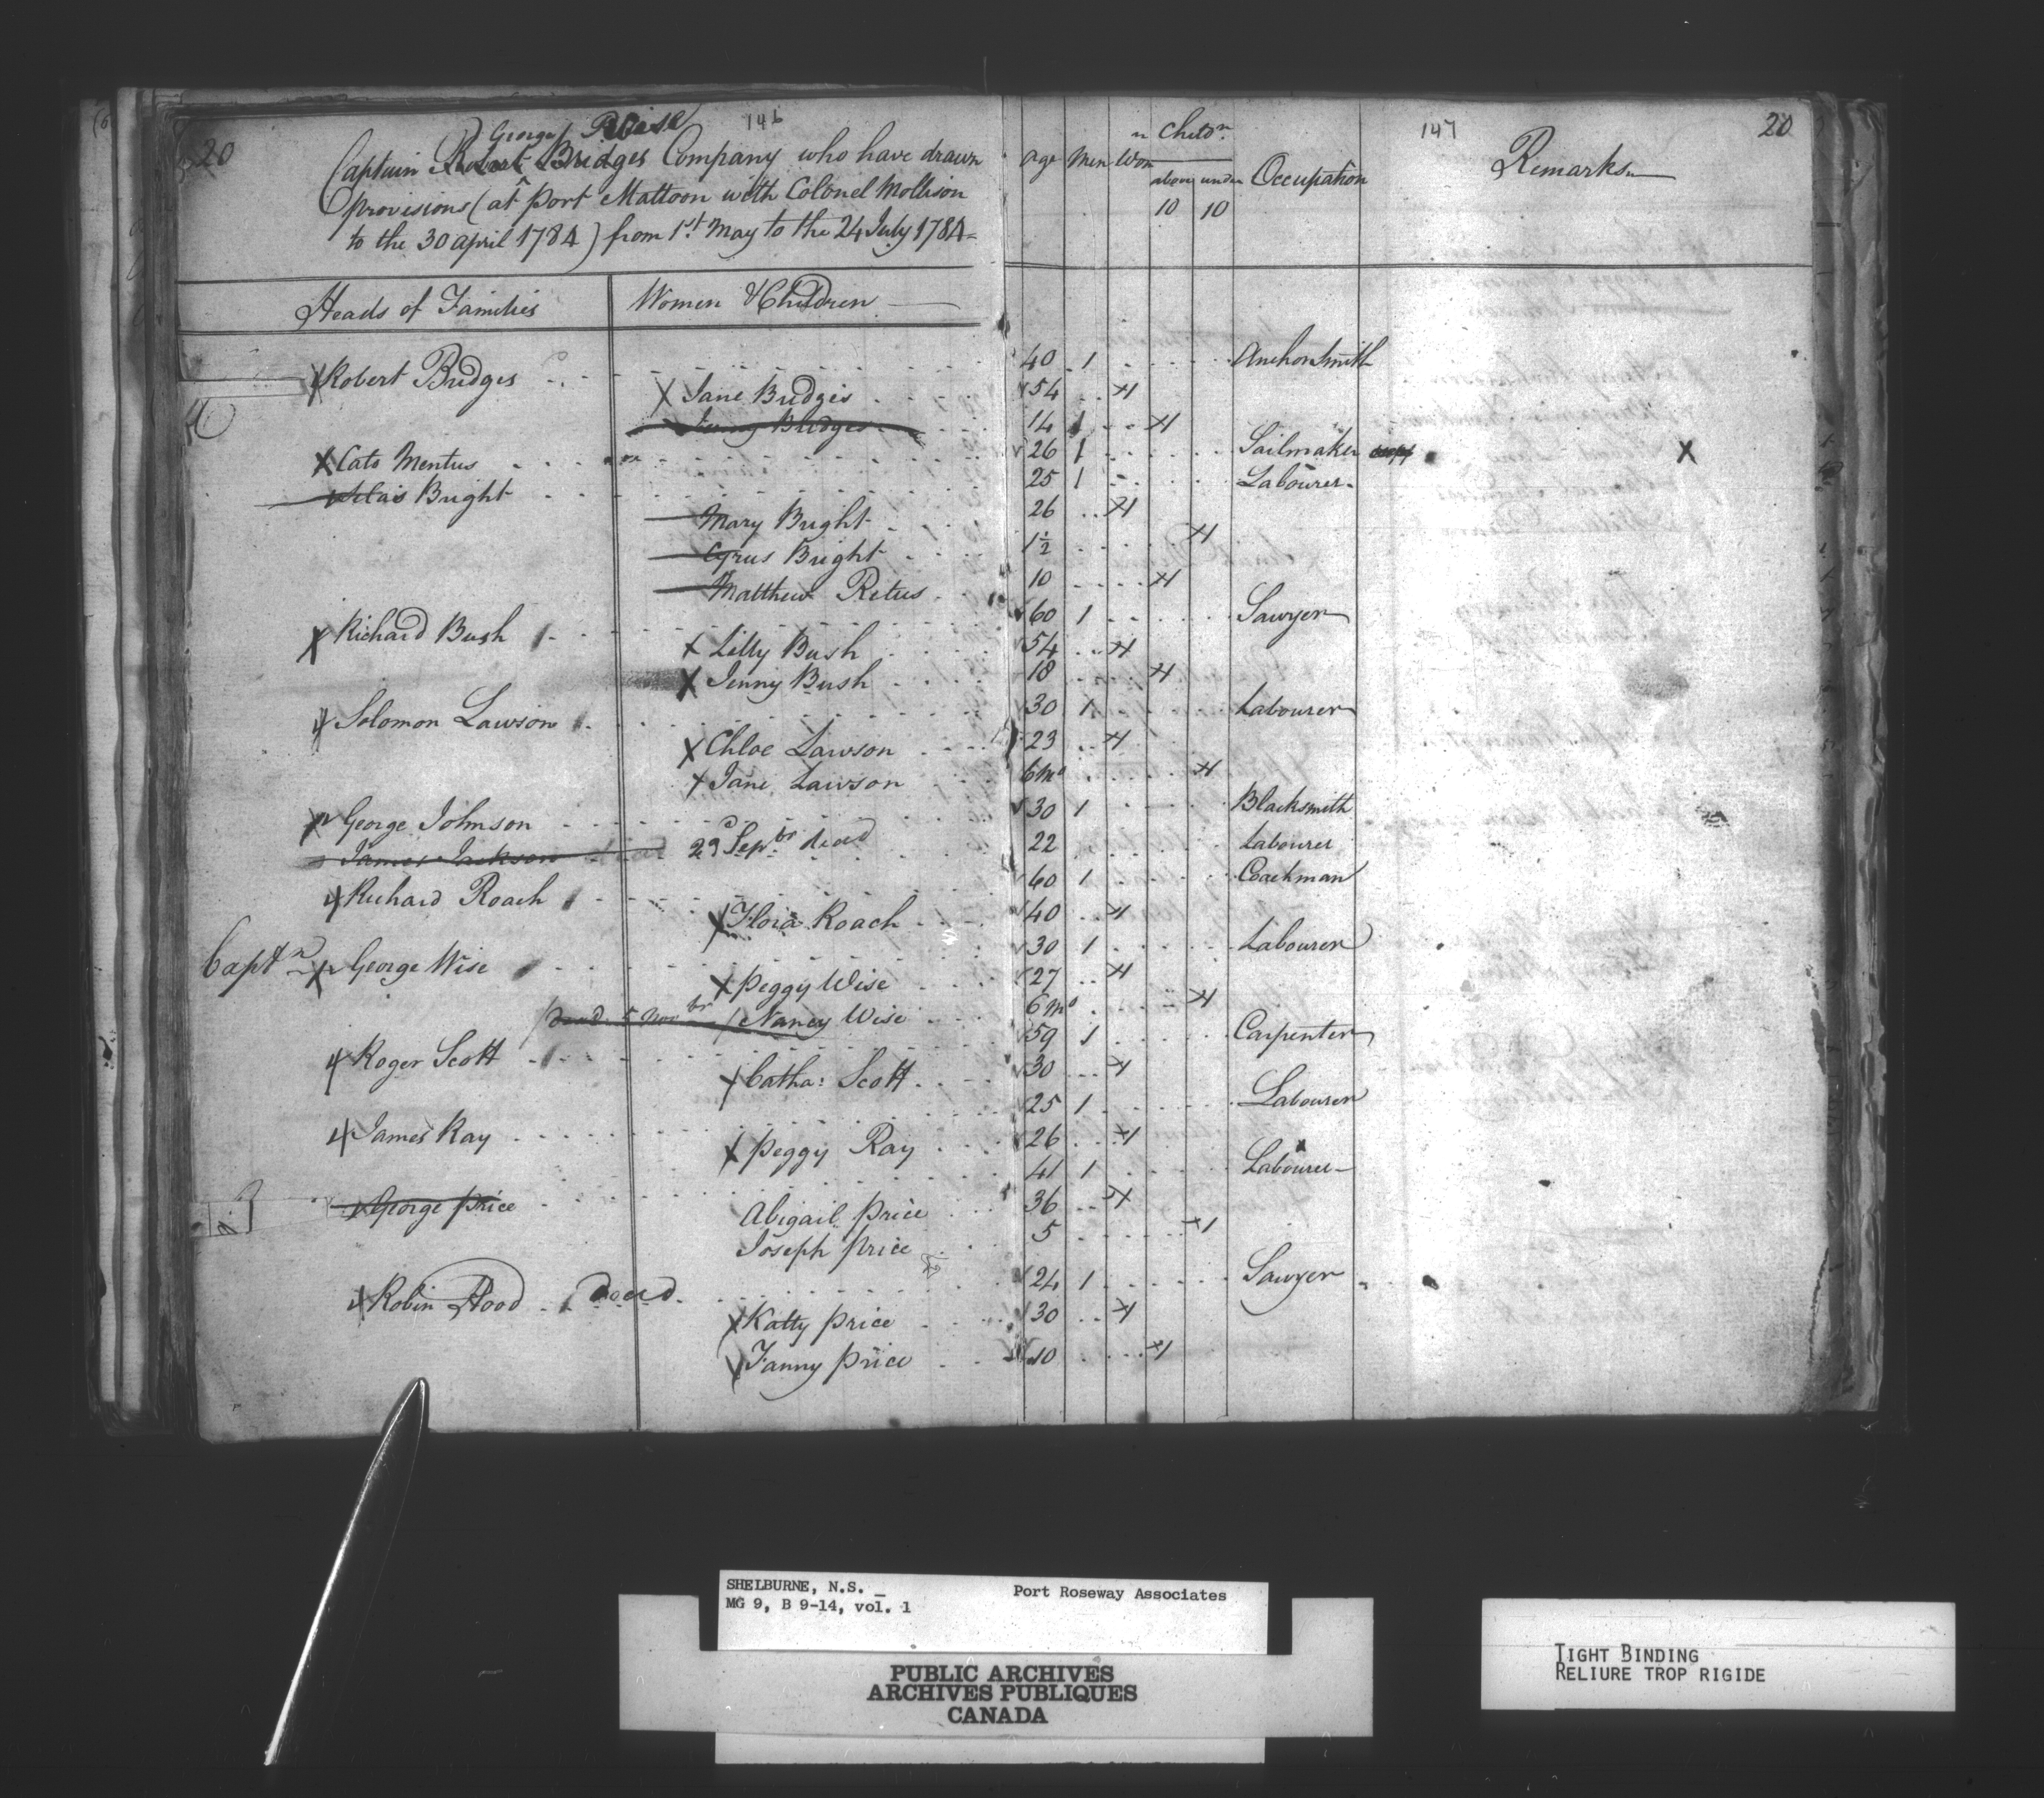 20 George Wise 146
Captain Robert Bridges Company who have drawn
provisions (at port Mattoon with Colonel Mollison
to the 30 april 1784) from 1st May to the 24 July 1784
Age Men Won Childn. 147 20
above 10 under 10 Occupation Remarks
Heads of Families Women & Children
Robert Bridges 40 1 Anchor Smith
X Jane Bridges 54 1
Bridges 14 1 1
X Cato Mentus 26 1 Sailmaker X
Bright 25 1 Labourer
Mary Bright 26 1
Cyrus Bright 1½ 1
Matthew Retus 10 1
X Richard Bush 60 1 Sawyer
X Lilly Bush 54 1
X Jenny Bush 18 1
Solomon Lawson 30 1 Labourer
X Chloe Lawson 23 1
X Jane Lawson 6 mo 1
George Johnson 30 1 Blacksmith
James Jackson 2d Sepbr dead 22 Labourer
Richard Roach 60 1 Coachman
X Flora Roach 40 1
Captn George Wise 30 1 Labourer
X Peggy Wise 27 1
dead 5 Novbr Nancy Wise 6 mo 1
Roger Scott 59 1 Carpenter
X Catha: Scott 30 1
James Ray 25 1 Labourer
X Peggy Ray 26 1
George Price 41 1 Labourer
Abigail Price 36 1
Joseph Price 5 1
Robin Hood dead 24 1 Sawyer
X Katty Price 30 1
X Fanny Price 10 1
SHELBURNE, N.S. Port Roseway Associates
MG 9, B 9-14, vol. 1
PUBLIC ARCHIVES
ARCHIVES PUBLIQUES
CANADA
TIGHT BINDING
RELIURE TROP RIGIDE